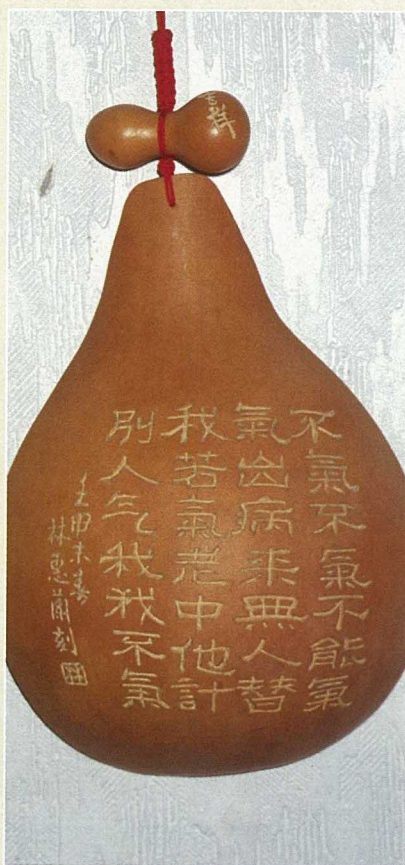 吉祥
不氣不氣不能氣
氣出病來無人替
我若氣老中他計
別人气我我不氣
壬申春
林惠蘭刻